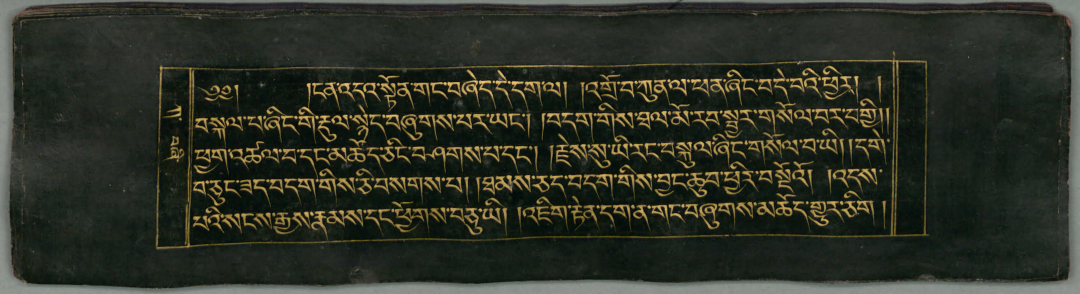 ༄༅། །ངན་འདའ་སྟོན་གང་བཞེད་དེ་དག་ལ། །འགྲོ་བ་ཀུན་ལ་ཕན་ཞིང་བདེ་བའི་ཕྱིར། །
བསྐལ་པ་ཞིང་གི་རྡུལ་སྙེད་བཞུགས་པར་ཡང་། །བདག་གིས་ཐལ་མོ་རབ་སྦྱར་གསོལ་བར་བགྱི།།
ཕྱག་འཚལ་བ་དང་མཆོད་ཅིང་བཤགས་པ་དང་། །རྗེས་སུ་ཡི་རང་བསྐུལ་ཞིང་གསོལ་བ་ཡི། །དགེ་
བ་ཅུང་ཟད་བདག་གིས་ཅི་བསགས་པ། །ཐམས་ཅད་བདག་གིས་བྱང་ཆུབ་ཕྱིར་བསྔོའོ། །འདས་
པའི་སངས་རྒྱས་རྣམས་དང་ཕྱོགས་བཅུ་ཡི། །འཇིག་རྟེན་དག་ན་གང་བཞུགས་མཆོད་གྱུར་ཅིག །